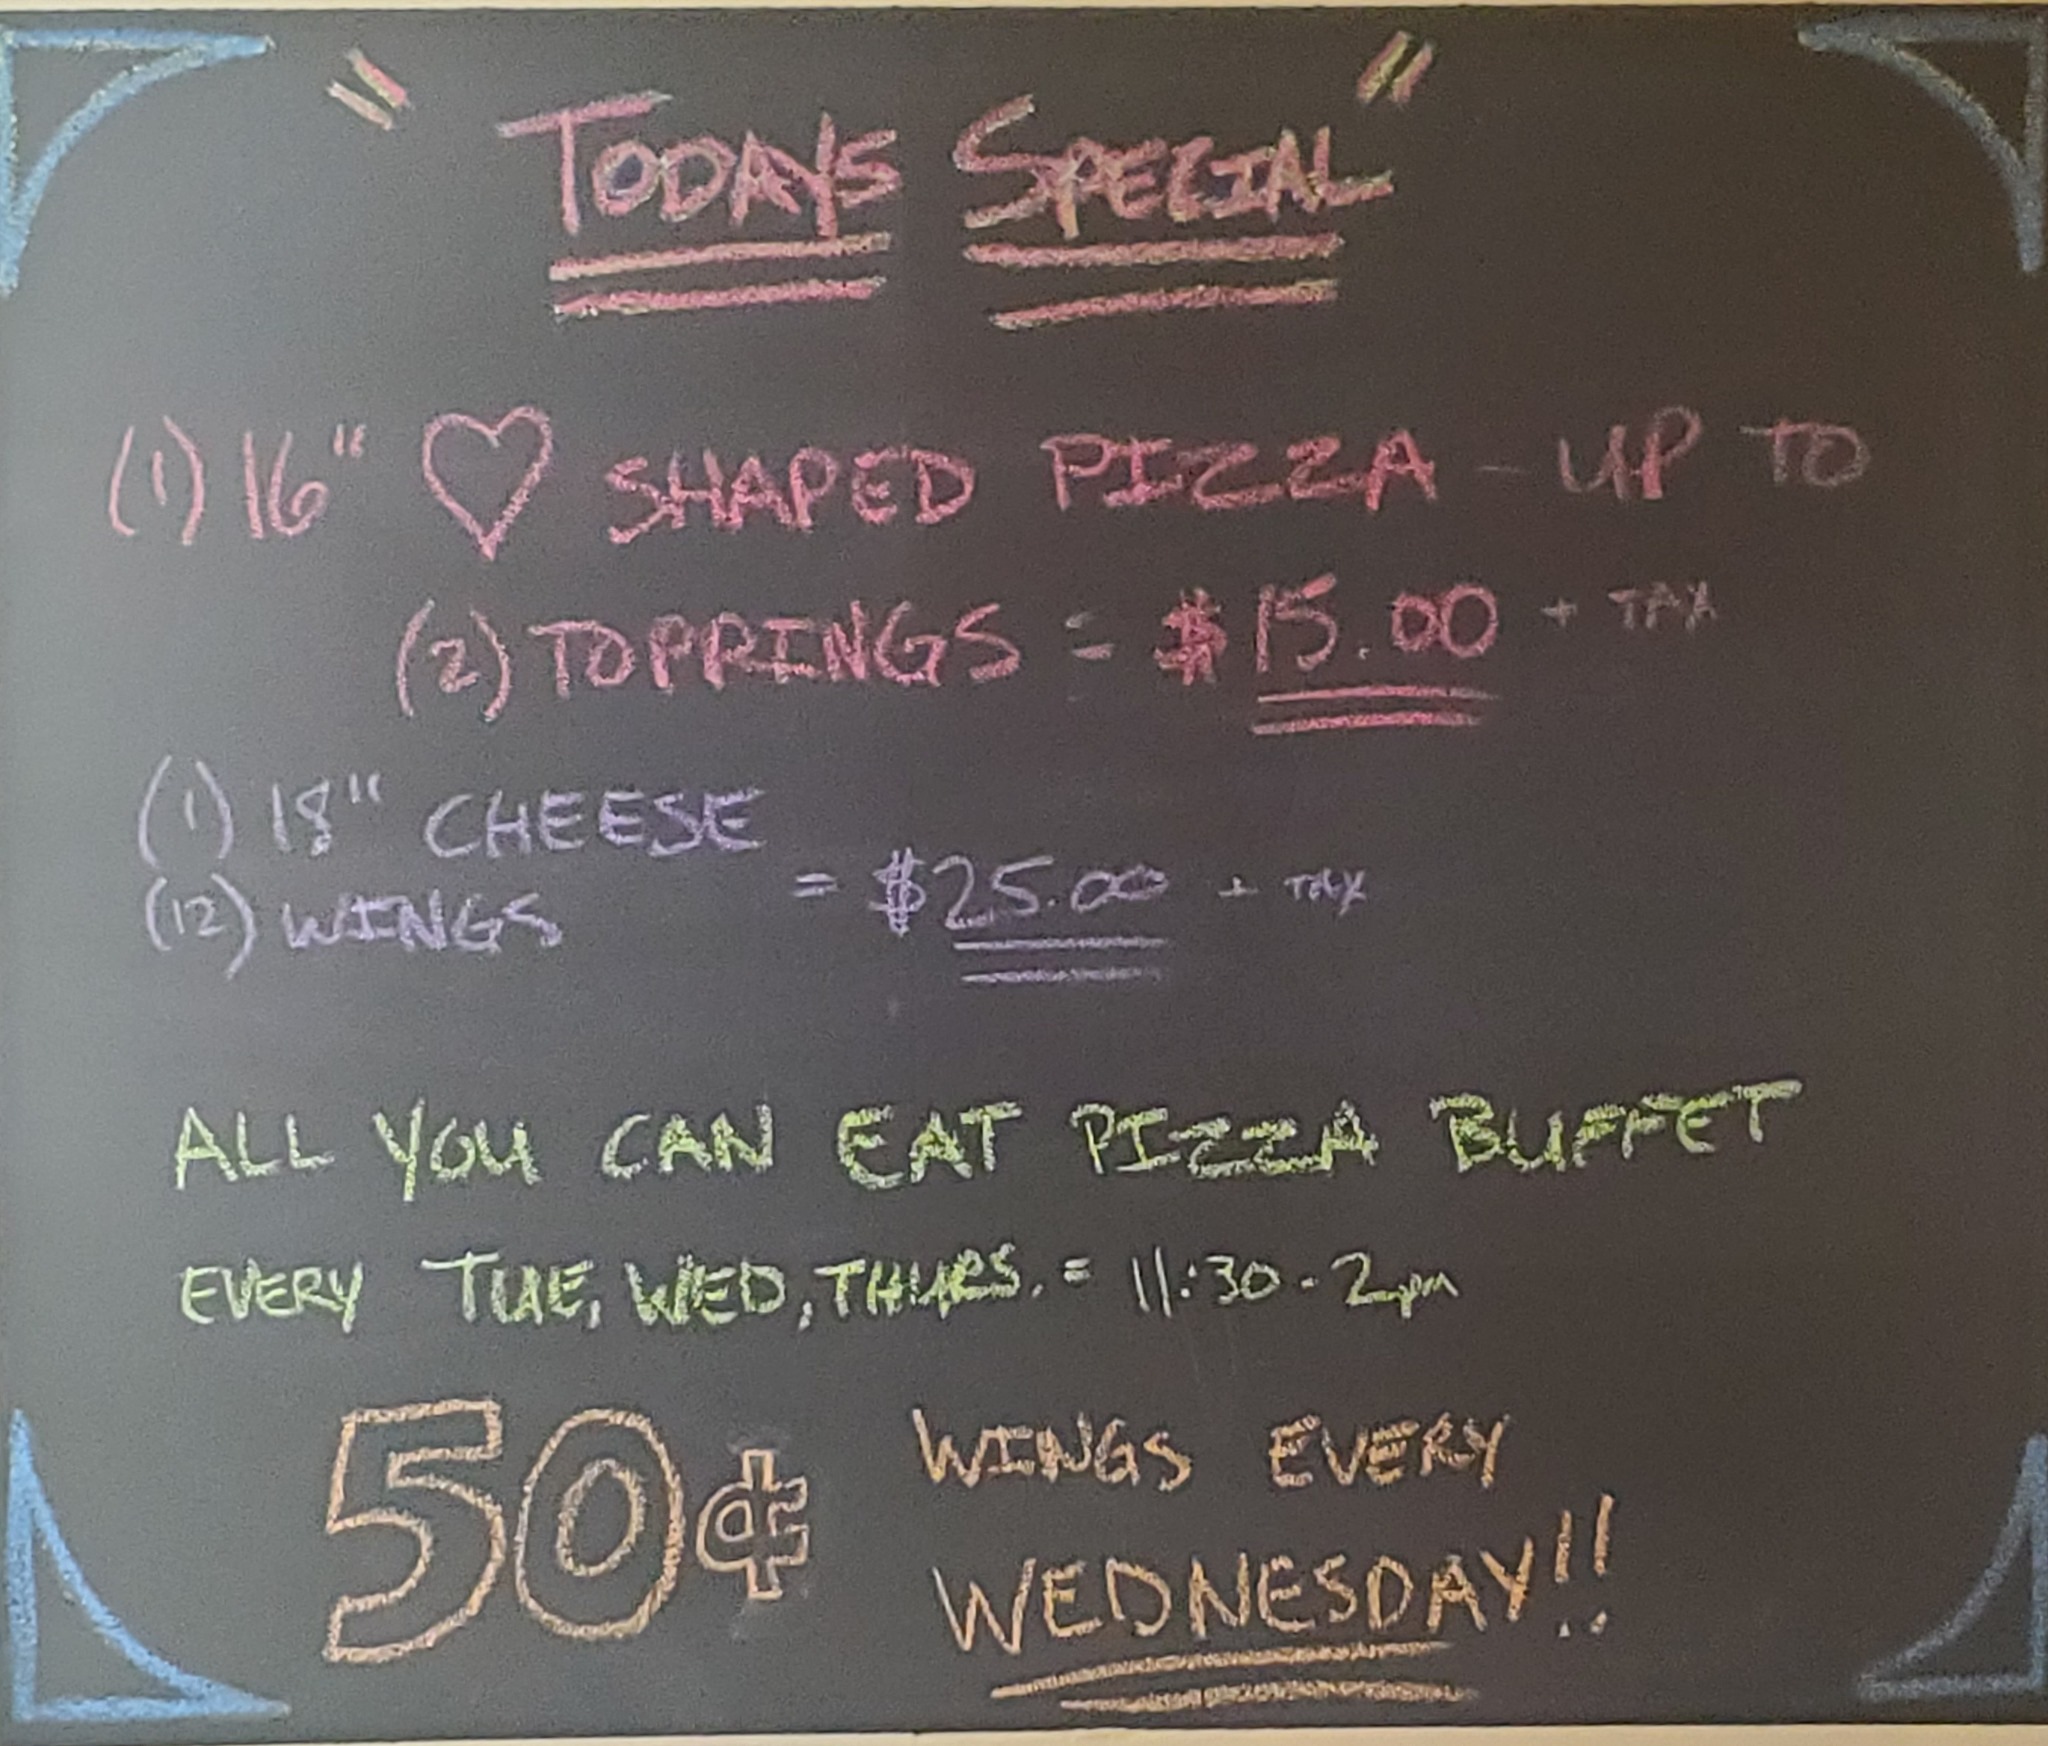 "Todays Special"
(1) 16" ♡ SHAPED PIZZA - UP TO
(2) TOPPINGS = $15.00 + TAX
(1) 18" CHEESE
(12) WINGS = $25.00 + TAX
ALL YOU CAN EAT PIZZA BUFFET
EVERY TUE, WED, THURS. = 11:30 - 2pm
50¢ WINGS EVERY
WEDNESDAY!!